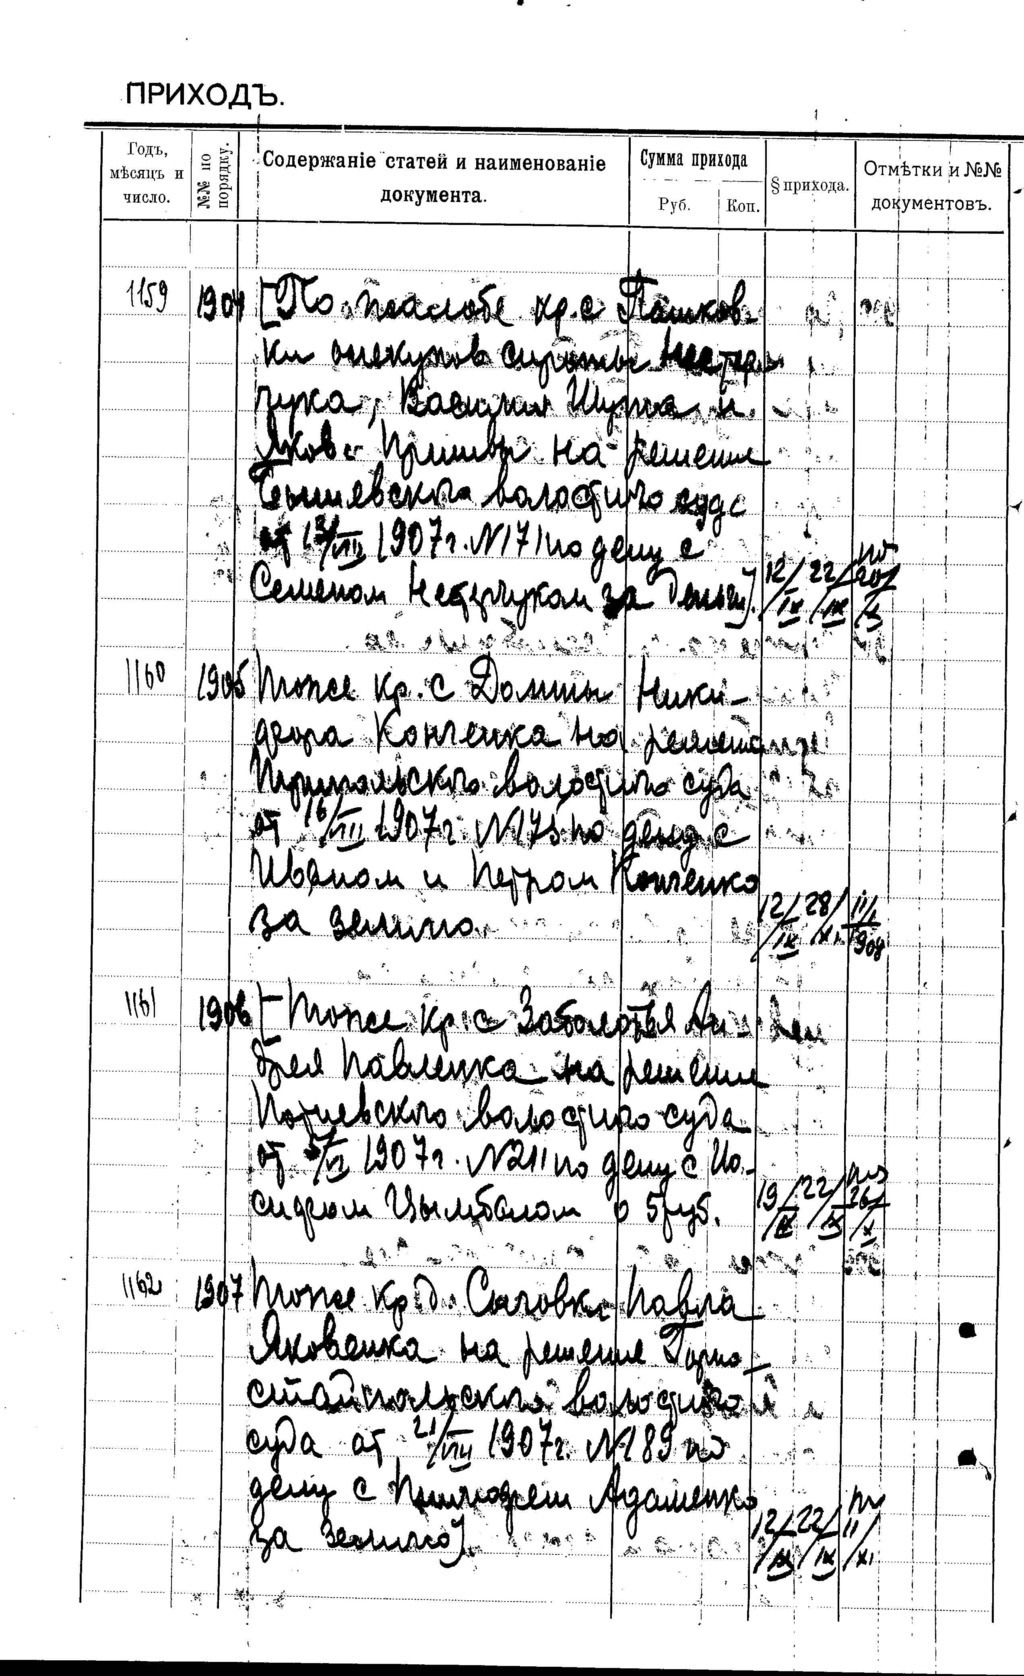 ПРИХОДЪ.
Годъ, мѣсяцъ и число.
№№ по порядку.
Содержаніе статей и наименованіе документа.
Сумма прихода
Руб. Коп.
§ прихода.
Отмѣтки и №№ документовъ.
1159 1904 [По жалобе кр. с Пашков-
ки опекунов сироты Нестер-
чука, Василия и
Яков на решение
волостного суда
от 1907 г. N 171 по делу с
Семеном Нестерчуком за деньги]. 12/IX 22/IX по 20/X
1160 1905 Тоже кр. с Долины Ники-
фора Конченка на решение
Трипольского волостного суда
от 16/VIII 1907 г. N 175 по делу с
Иваном и Петром Конченко
за землю. 12/IX 28/XI 11/I 1908
1161 1906 [Тоже кр. с Заболотья Ан-
дрея Павленка на решение
Потиевского волостного суда
от 1907 г. N 211 по делу с Ио-
сифом Цымбалом о 5 руб. 19/IX 22/IX 26/X
1162 1907 Тоже кр. д. Сычовки Павла
Яковенка на решение Горно-
стайпольского волостного
суда от 21/VIII 1907 г. N 189 по
делу с Адаменко
за землю] 12/IX 22/IX 11/XI